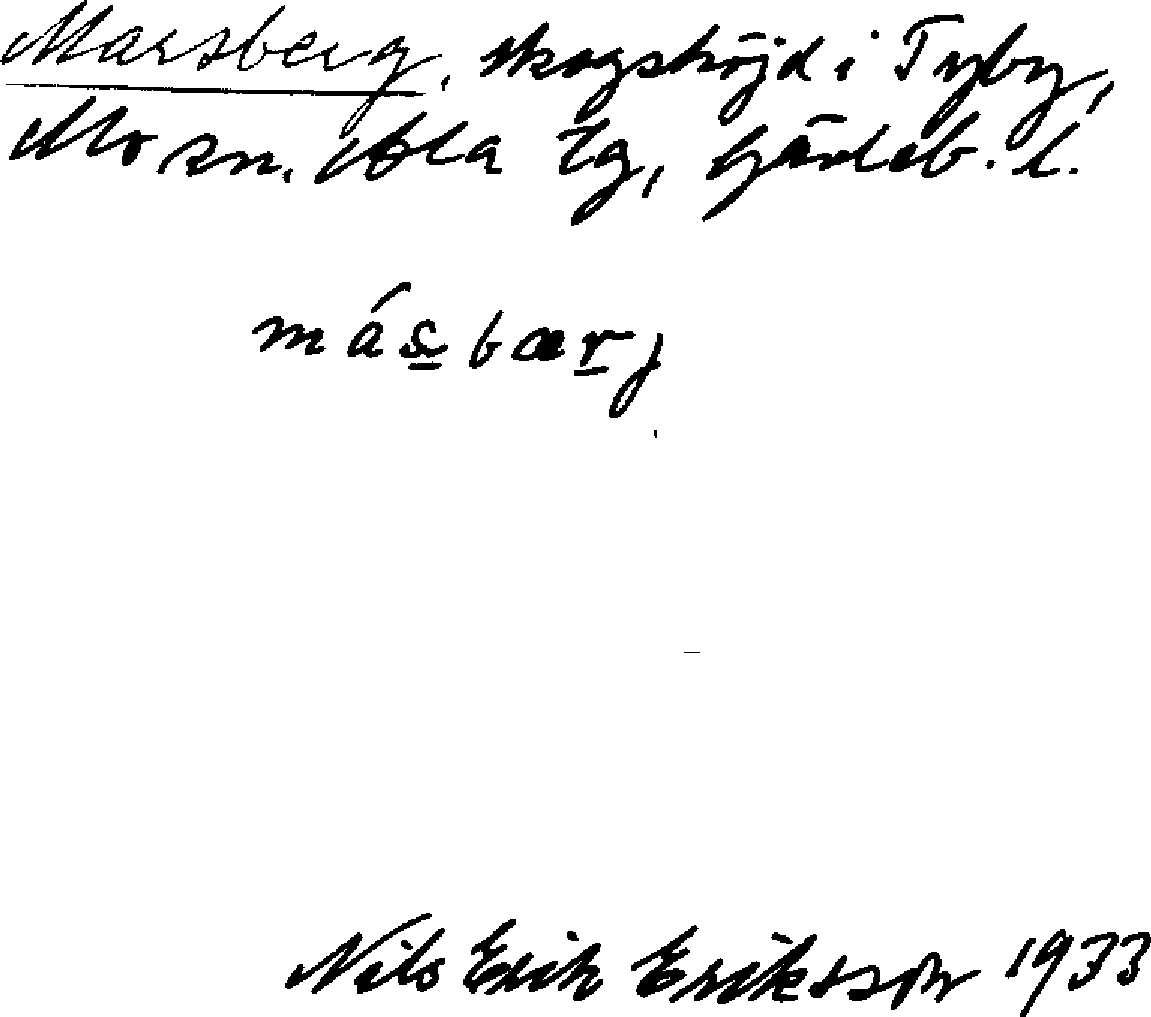 Marsberg, skogshöjd i Tyby,
Mo sn. Ala tg, Gävleb. l.
másbærj
Nils Erik Eriksson 1933